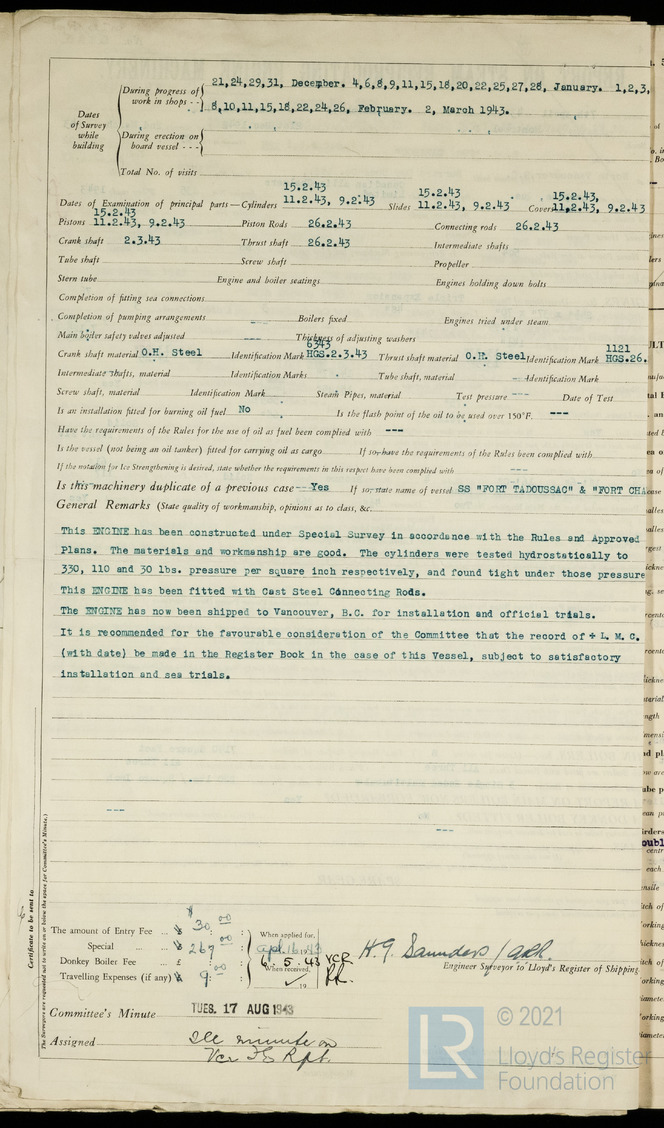 21,24,29,31, December. 4,6,8,9,11,15,18,20,22,25,27,28, January. 1,2,3,
During progress of work in shops - -
8,10,11,15,18,22,24,26, February. 2, March 1943.
Dates of Survey while building
During erection on board vessel - - -
Total No. of visits
15.2.43 15.2.43 15.2.43,
Dates of Examination of principal parts—Cylinders 11.2.43, 9.2.43 Slides 11.2.43, 9.2.43 Covers 11.2.43, 9.2.43
15.2.43
Pistons 11.2.43, 9.2.43 Piston Rods 26.2.43 Connecting rods 26.2.43
Crank shaft 2.3.43 Thrust shaft 26.2.43 Intermediate shafts
Tube shaft Screw shaft Propeller
Stern tube Engine and boiler seatings Engines holding down bolts
Completion of fitting sea connections
Completion of pumping arrangements --- Boilers fixed Engines tried under steam
Main boiler safety valves adjusted --- Thickness of adjusting washers
6343 1121
Crank shaft material O.H. Steel Identification Mark HGS.2.3.43 Thrust shaft material O.H. Steel Identification Mark HGS.26.
Intermediate shafts, material Identification Marks Tube shaft, material --- Identification Mark
Screw shaft, material Identification Mark Steam Pipes, material Test pressure --- Date of Test
Is an installation fitted for burning oil fuel No Is the flash point of the oil to be used over 150°F. ---
Have the requirements of the Rules for the use of oil as fuel been complied with ---
Is the vessel (not being an oil tanker) fitted for carrying oil as cargo If so, have the requirements of the Rules been complied with
If the notation for Ice Strengthening is desired, state whether the requirements in this respect have been complied with ---
Is this machinery duplicate of a previous case Yes If so, state name of vessel SS "FORT TADOUSSAC" & "FORT CHA
General Remarks (State quality of workmanship, opinions as to class, &c.
This ENGINE has been constructed under Special Survey in accordance with the Rules and Approved
Plans. The materials and workmanship are good. The cylinders were tested hydrostatically to
330, 110 and 30 lbs. pressure per square inch respectively, and found tight under those pressure
This ENGINE has been fitted with Cast Steel Connecting Rods.
The ENGINE has now been shipped to Vancouver, B.C. for installation and official trials.
It is recommended for the favourable consideration of the Committee that the record of + L. M. C.
(with date) be made in the Register Book in the case of this Vessel, subject to satisfactory
installation and sea trials.
---
---
Certificate to be sent to
(The Surveyors are requested not to write on or below the space for Committee's Minute.)
The amount of Entry Fee ... $ 30.00 When applied for,
Special ... $ 267.00 Apl. 16 1943
Donkey Boiler Fee ... £ 6. 5. 43 VCR
Travelling Expenses (if any) $ 9.00 When received,
19
H. G. Saunders
Engineer Surveyor to Lloyd's Register of Shipping.
Committee's Minute TUES. 17 AUG 1943
Assigned see minute on
Vcr FE Rpt.
LR © 2021
Lloyd's Register
Foundation